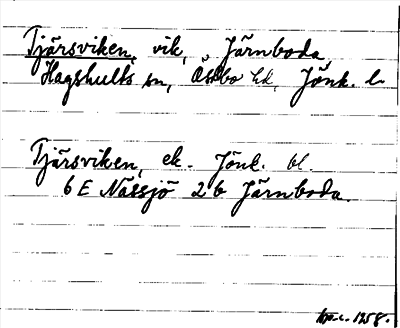 Tjärsviken, vik, Järnboda,
Hagshults sn, Östbo hd, Jönk. l.
Tjärsviken, ek. Jönk. bl.
6 E Nässjö 2 b Järnboda.
1958.